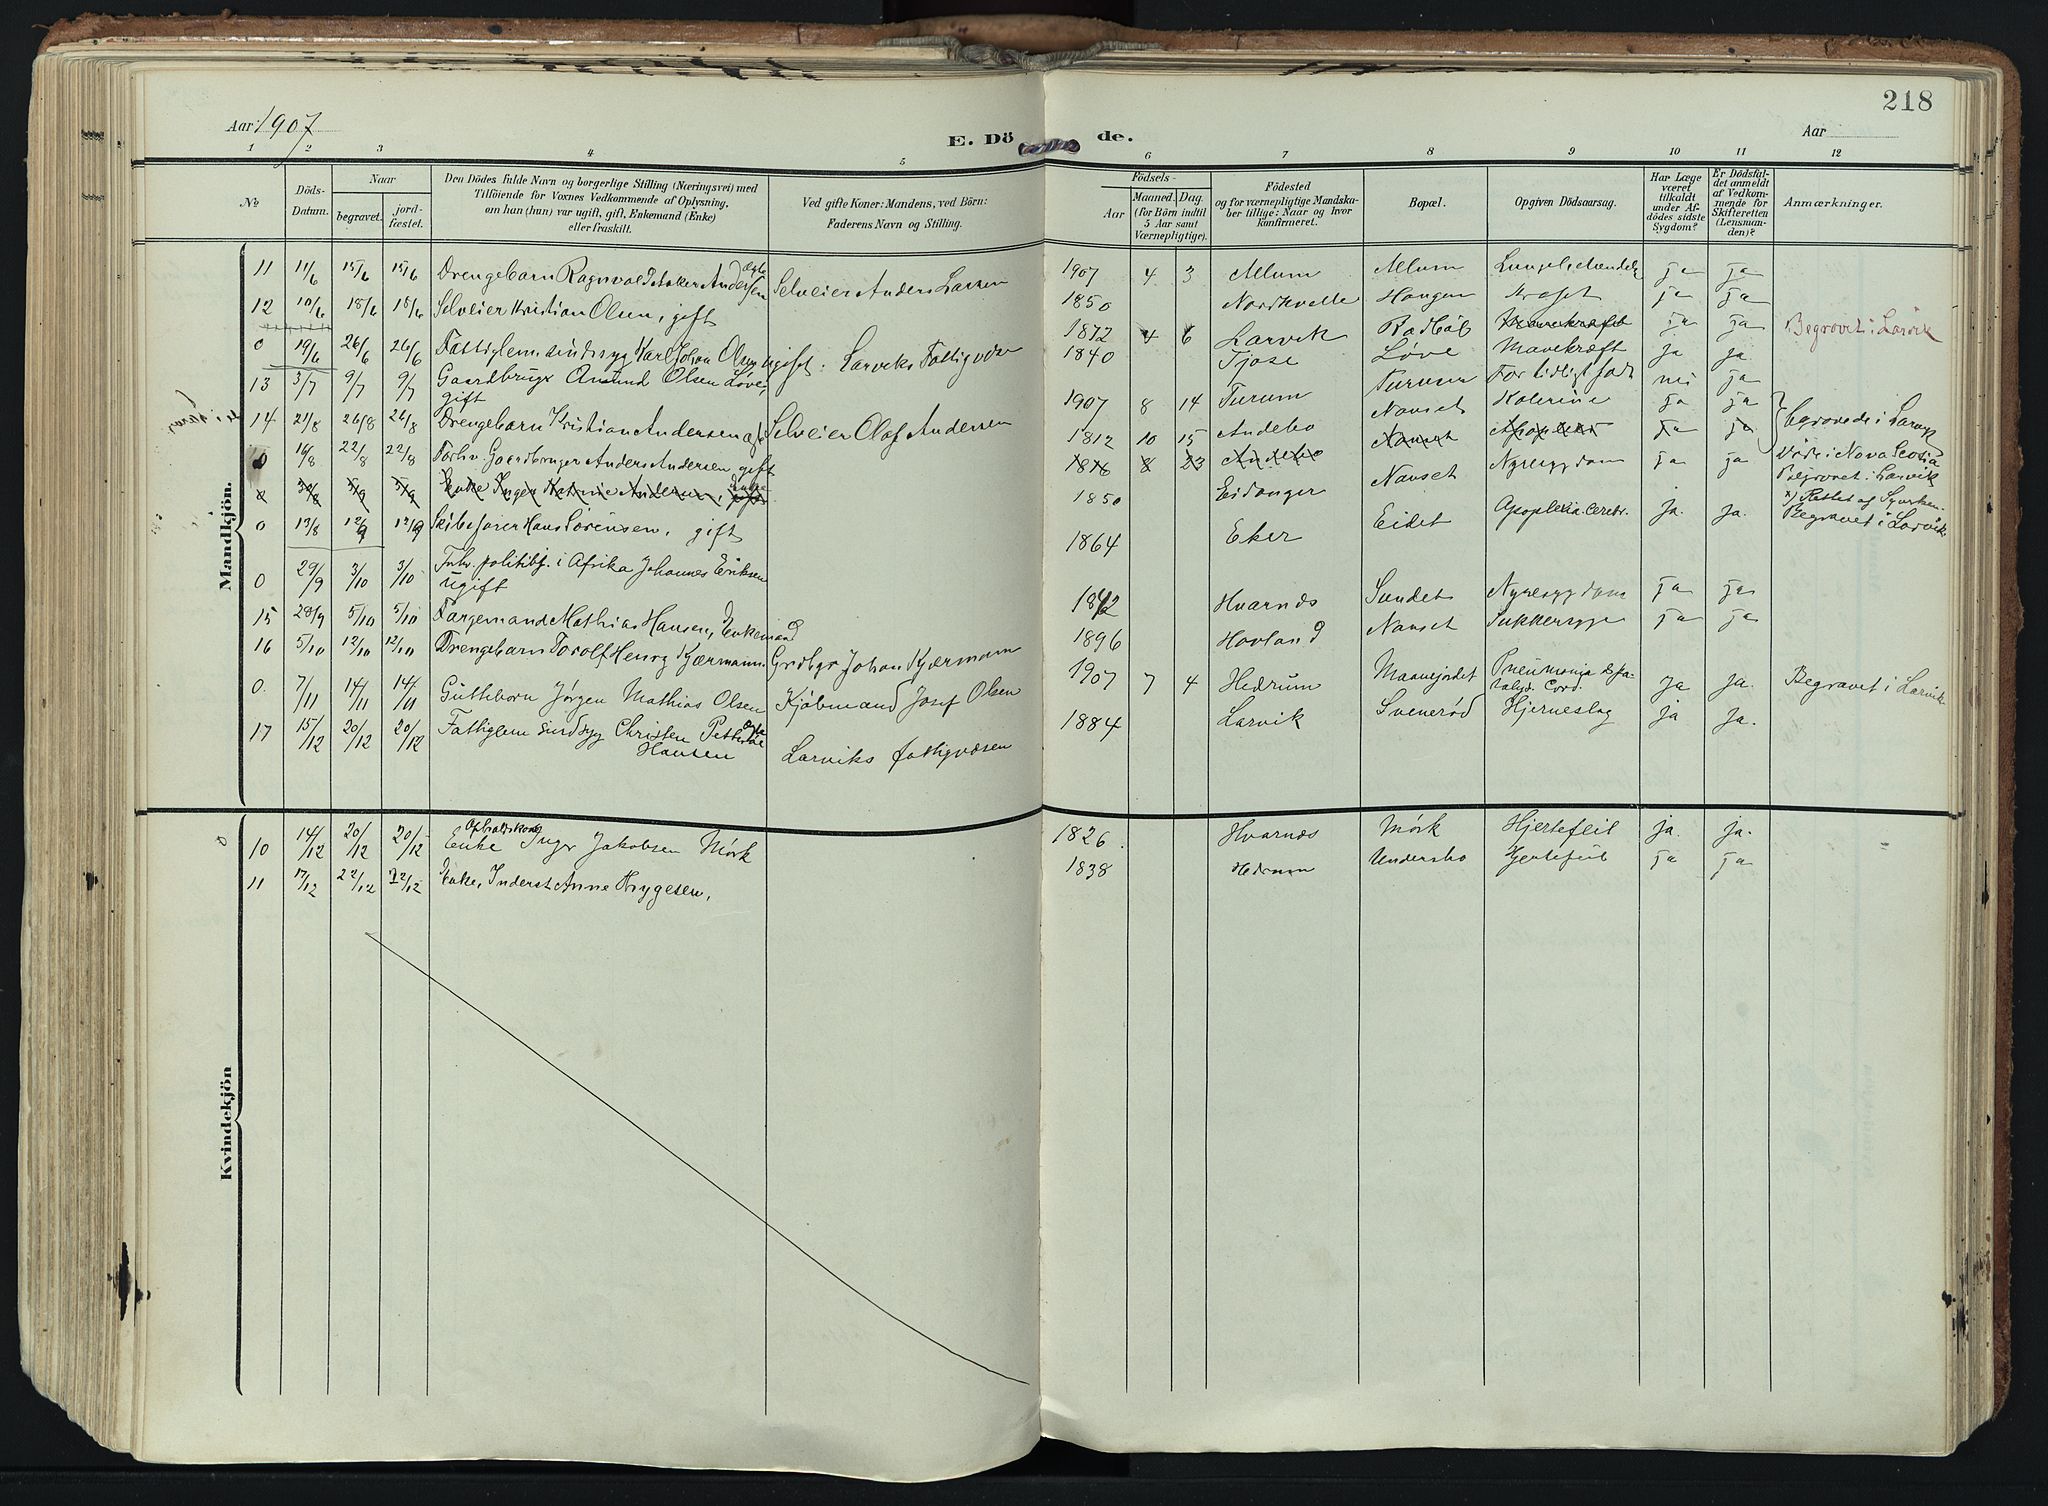 218
Aar 1907
E. Dö de.
Aar
1 2 3 4 5 6 7 8 9 10 11 12
№
Döds-Datum.
Naar
begravet.
jord-fæstet.
Den Dödes fulde Navn og borgerlige Stilling (Næringsvei) med
Tilföiende for Voxnes Vedkommende af Oplysning,
om han (hun) var ugift, gift, Enkemand (Enke)
eller fraskilt.
Ved gifte Koner: Mandens, ved Börn:
Faderens Navn og Stilling.
Födsels-
Aar
Maaned. Dag.
(for Börn indtil
5 Aar samt
Værnepligtige).
Födested
og for værnepligtige Mandska-
ber tillige: Naar og hvor
konfirmeret.
Bopæl.
Opgiven Dödsaarsag.
Har Læge
været
tilkaldt
under Af-
dödes sidste
Sygdom?
Er Dödsfal-
det anmeldt
af Vedkom-
mende for
Skifteretten
(Lensman-
den)?
Anmærkninger.
Mandkjön.
11 11/6 15/6 15/6 Drengebarn Ragnvald Andersen ægte Selveier Anders Larsen 1907 4 3 Allum Allum ja ja
12 10/6 18/6 18/6 Selveier Kristian Olsen, gift 1850 Nordkvelle Haugen Kræft ja ja
0 19/6 26/6 26/6 Fattiglem sindssyg Karl Johan Olsen ugift. Larviks Fattigvæsen 1872 4 6 Larvik Rødbøl Mavekræft ja ja Begravet i Larvik
13 3/7 9/7 9/7 Gaardbruger Amund Olsen Løve, gift 1840 Tjose Løve Mavekræft ja ja
14 21/8 26/8 26/8 Drengebarn Kristian Andersen Selveier Olaf Andersen 1907 8 14 Furum Furum For tidligt født nei ja
0 16/8 22/8 22/8 Forhv. Gaardbruger Anders Andersen gift 1812 10 15 Andebo Nanset Kolerine ja ja Begravede i Larvik
0 30/8 5/9 5/9 Enke Inger Katrine Andersen, 1818 8 23 Andebo Nanset Apopleksi ja ja
0 13/8 12/9 12/9 Skibsfører Hans Sørensen, gift 1850 Eidanger Nanset Nyresygdom ja ja Død i Nova Scotia Begravet i Larvik
0 29/9 3/10 3/10 Fhv. politibj. i Afrika Johannes Eriksen ugift 1864 Eker Eidet Apoplexia Cerebr. ja. ja. Begravet i Larvik.
15 28/9 5/10 5/10 Færgemand Mathias Hansen, Enkemand 1842 Hvarnæs Sundet Nyresygdom ja ja
16 5/10 12/10 12/10 Drengebarn Torolf Henry Kjærmann Grdbgr Johan Kjærmann 1896 Hovland Nanset Sukkersyge ja ja
0. 7/11 14/11 14/11 Guttebarn Jørgen Mathias Olsen Kjøbmand Josef Olsen 1907 7 4 Hedrum Maanejordet Pneumonia Cord. ja ja. Begravet i Larvik
17 15/12 20/12 20/12 Fattiglem sindsyg Christen Hansen Larviks fattigvæsen 1884 Larvik Svenerød Hjerneslag ja ja.
Kvindekjön
10 14/12 20/12 20/12 Enke Inger Jakobsen Mørk 1826. Hvarnæs Mørk Hjertefeil ja. ja.
11 17/12 22/12 22/12 Enke, Inderst Anne Trygesen, 1838 Hedrum Undersbo Hjertefeil ja ja